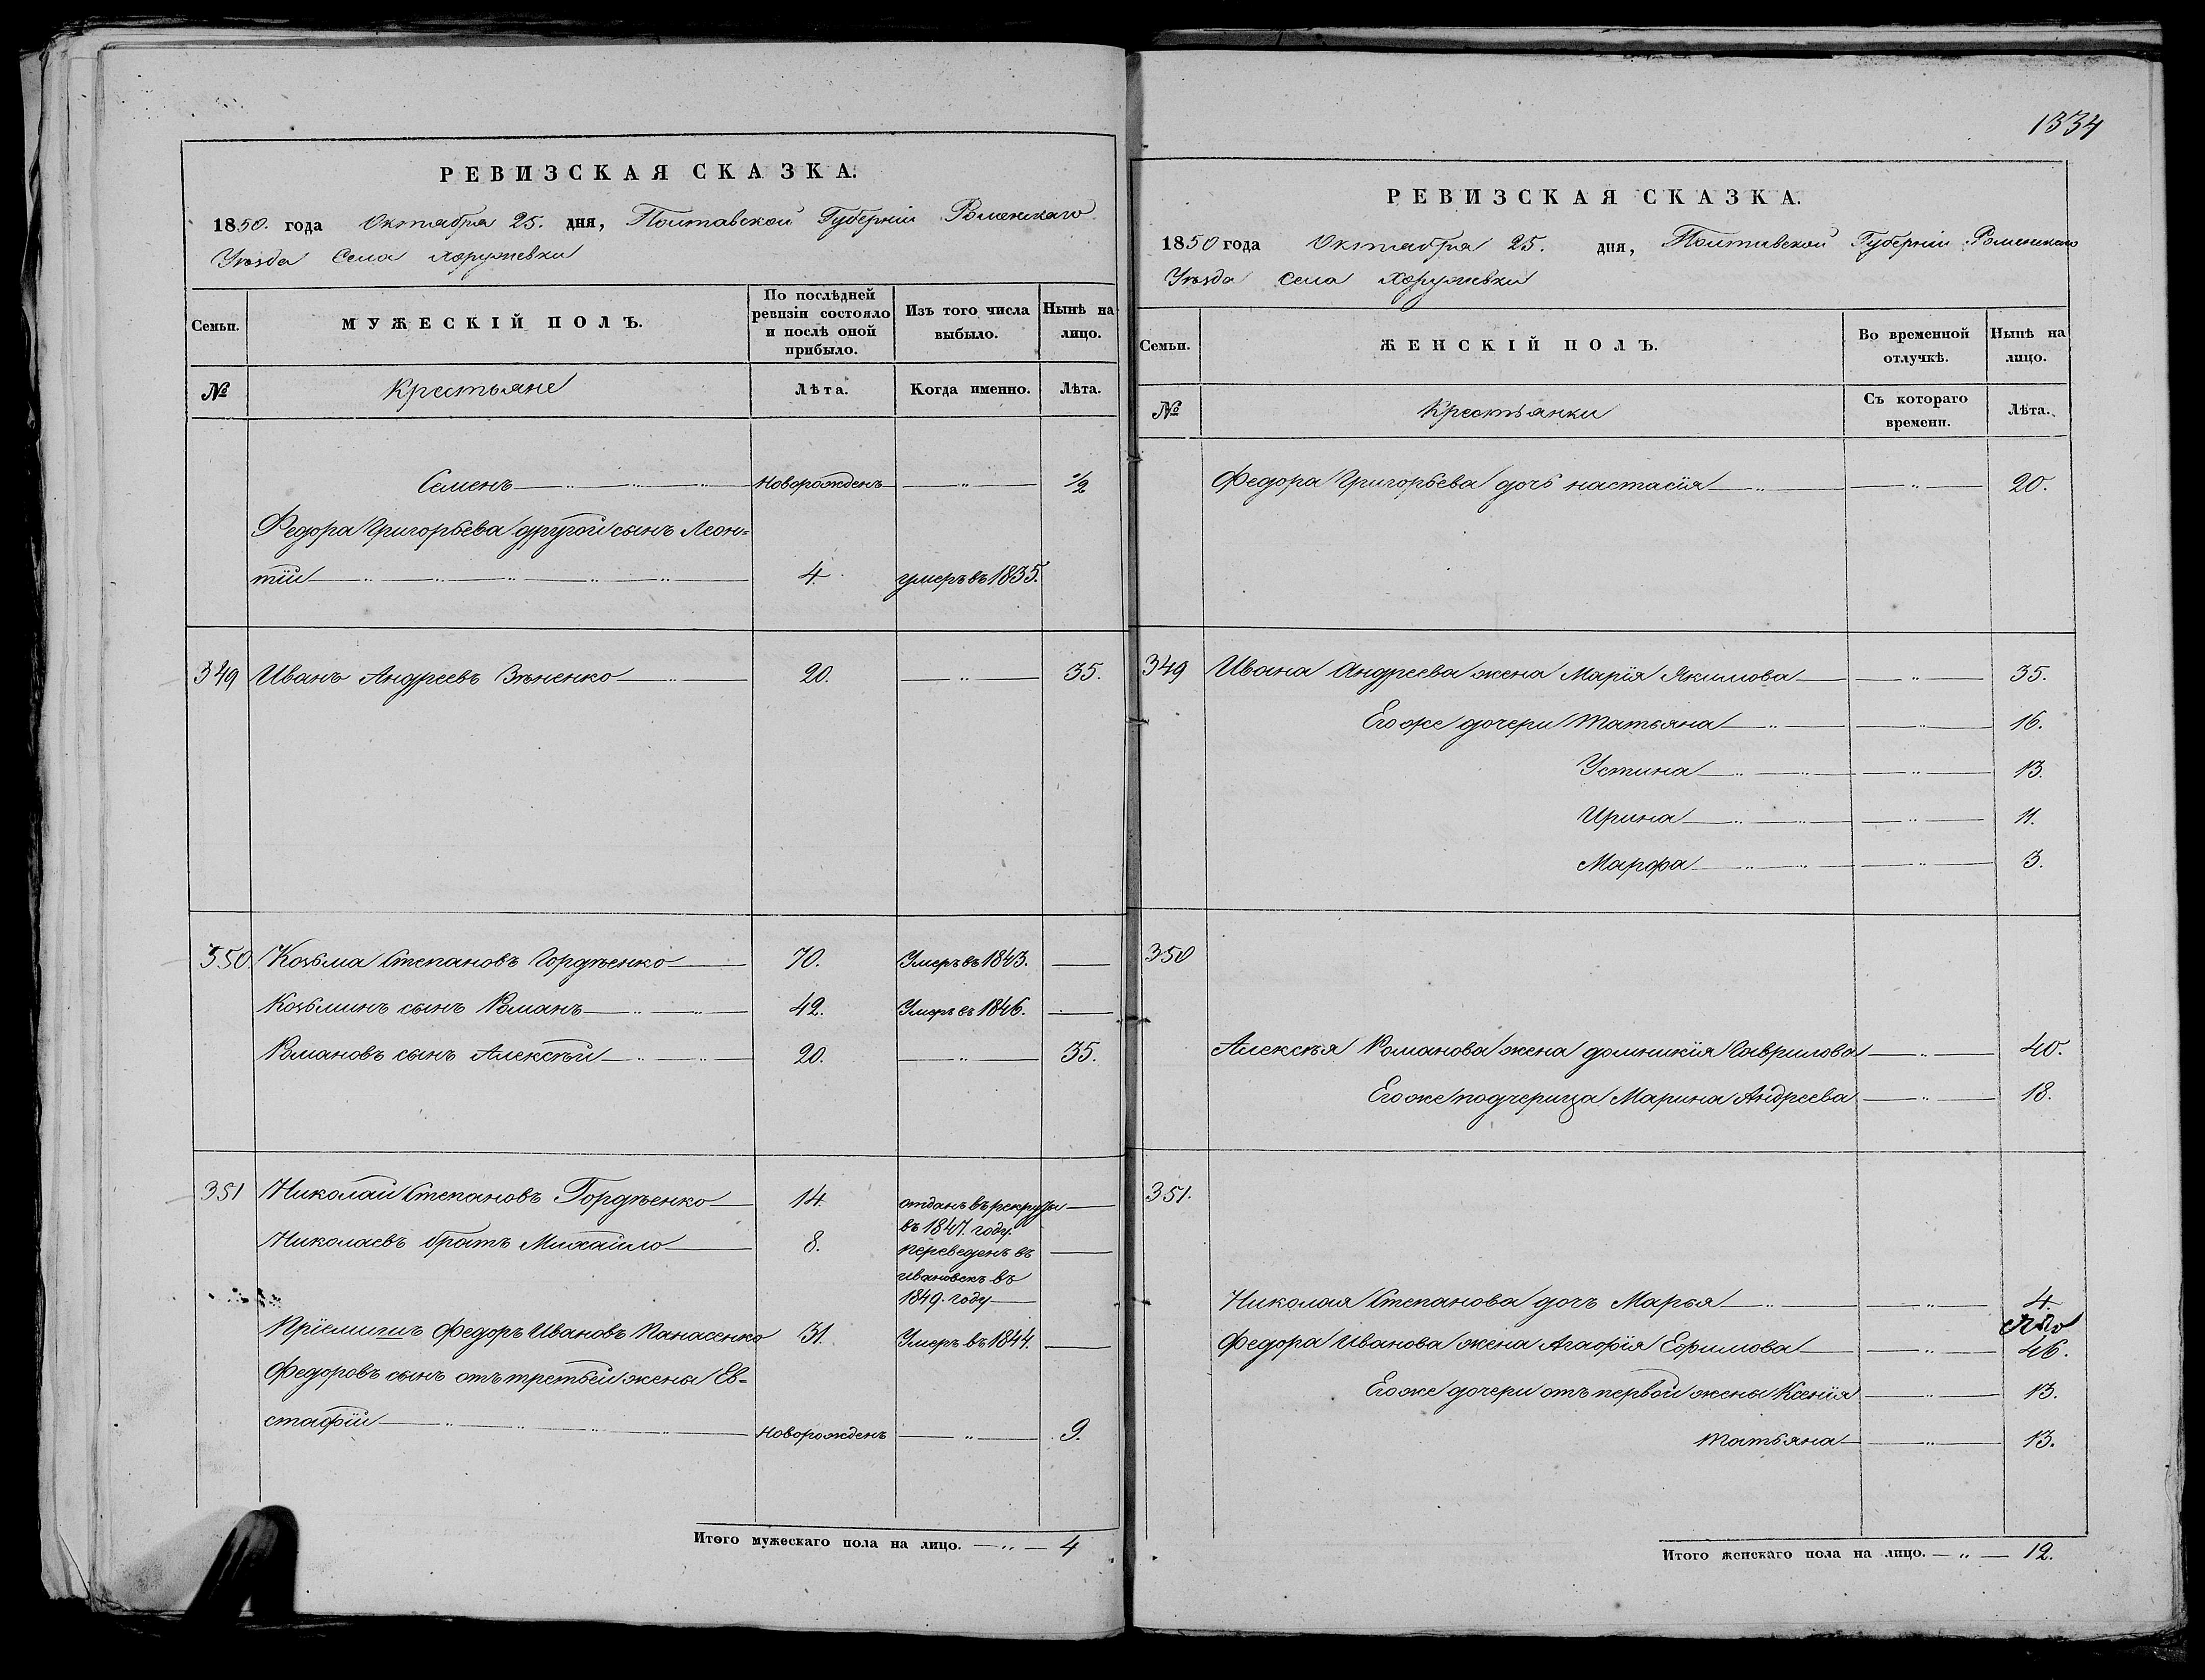 РЕВИЗСКАЯ СКАЗКА.
1850. года Октября 25. дня, Полтавской Губерніи Роменскаго
Уѣзда Села Хоружевки
Семьи.
МУЖЕСКІЙ ПОЛЪ.
По послѣдней ревизіи состояло и послѣ оной прибыло.
Изъ того числа выбыло.
Нынѣ на лицо.
№ Крестьяне Лѣта. Когда именно. Лѣта.
Семенъ Новорожденъ 1/2
Федора Григорьева другой сынъ Леон=
тій 4. умеръ въ 1835.
349 Иванъ Андреевъ Зѣненко 20. 35.
350. Козьма Степановъ Гордѣенко 70. Умеръ въ 1843.
Козьминъ сынъ Романъ 42. Умеръ въ 1846.
Романовъ сынъ Алексѣй 20. 35.
351 Николай Степановъ Гордѣенко 14. отданъ въ рекруты
въ 1847. году.
Николаевъ братъ Михайло 8. переведенъ въ
ивановск въ
1849. году
Пріемишъ Федоръ Ивановъ Панасенко 31. Умеръ въ 1844.
Федоровъ сынъ отъ третьей жены Ев=
стафій Новорожденъ 9.
Итого мужескаго пола на лицо. 4
1334
РЕВИЗСКАЯ СКАЗКА.
1850 года Октября 25. дня, Полтавской Губерніи Роменскаго
Уѣзда Села Хоружевки
Семьи.
ЖЕНСКІЙ ПОЛЪ.
Во временной отлучкѣ.
Нынѣ на лицо.
№ Крестьянки Съ котораго времени. Лѣта.
Федора Григорьева дочь настасія 20.
349 Ивана Андреева жена Марія Якимова 35.
Его же дочери Татьяна 16.
Устина 13.
Ирина 11.
Марфа 3.
350
Алексѣя Романова жена домникія Гаврилова 40.
Его же подчерица Марина Андреева 18.
351.
Николая Степанова дочь Марья 4.
Федора Иванова жена Агафія Ефимова 46.
Его же дочери отъ первой жены Ксенія 13.
Татьяна 13.
Итого женскаго пола на лицо. 12.